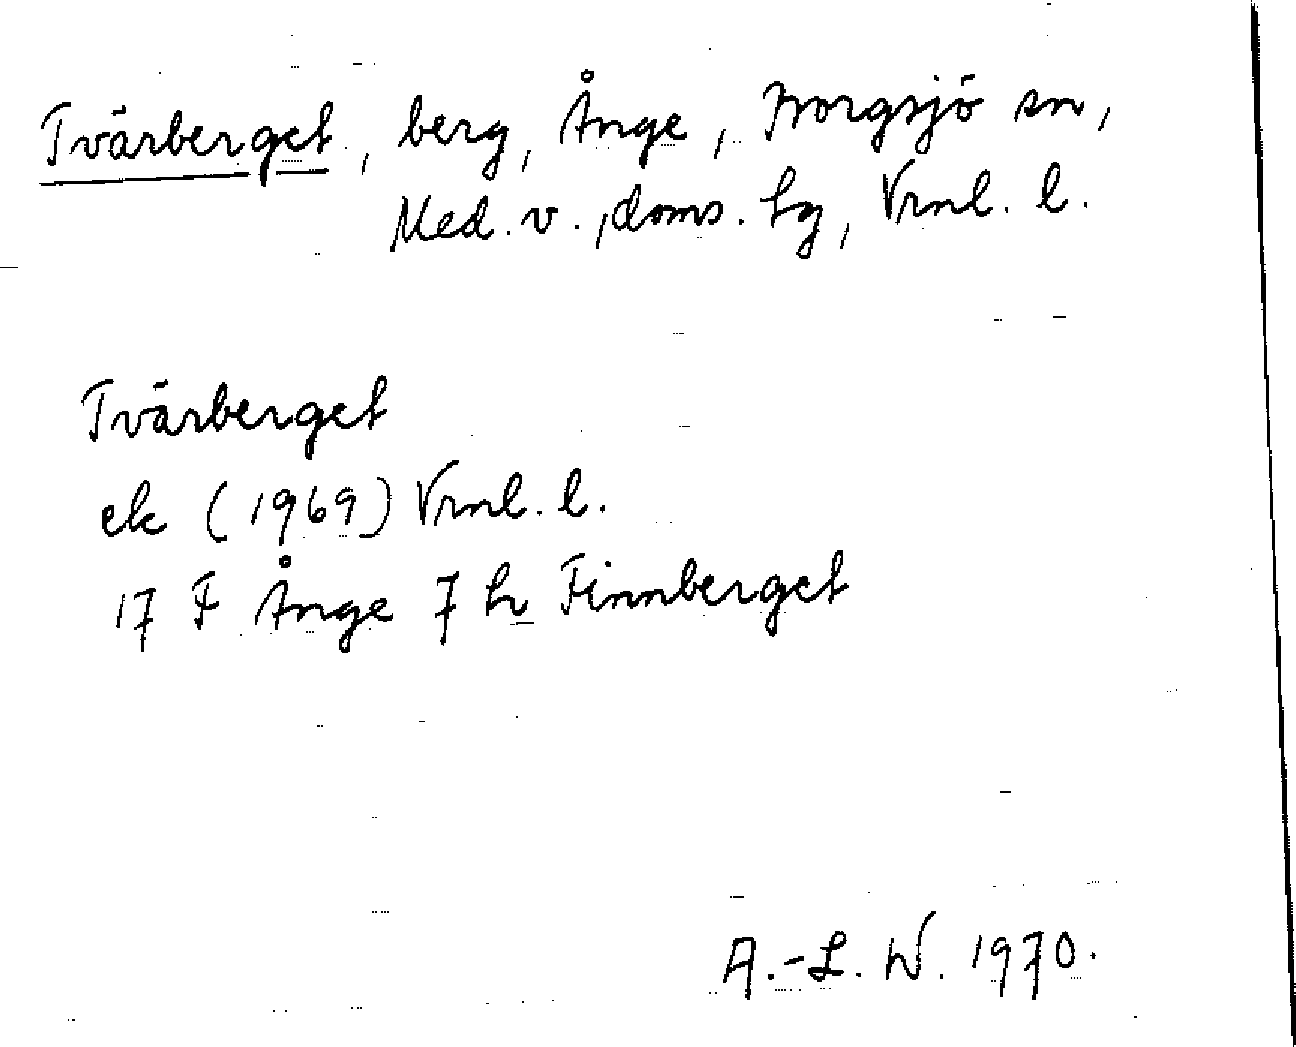 Tvärberget, berg, Ånge, Borgsjö sn,
Med. v. doms. hg, Vrnl. l.
Tvärberget
ek (1969) Vrnl. l.
17 F Ånge 7 h Finnberget
A.-L. W. 1970.